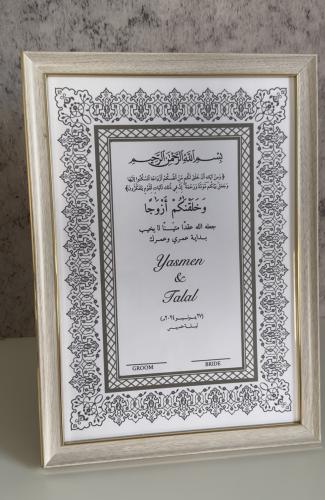 بِسْمِ اللَّهِ الرَّحْمَنِ الرَّحِيمِ
﴿وَمِنْ آيَاتِهِ أَنْ خَلَقَ لَكُم مِّنْ أَنفُسِكُمْ أَزْوَاجًا لِّتَسْكُنُوا إِلَيْهَا
وَجَعَلَ بَيْنَكُم مَّوَدَّةً وَرَحْمَةً إِنَّ فِي ذَلِكَ لَآيَاتٍ لِّقَوْمٍ يَتَفَكَّرُونَ﴾
وَخَلَقْنَاكُمْ أَزْوَاجًا
جعله الله عقدًا متينًا لا يخيب
بداية عمري وعمرك
Yasmen
&
Talal
GROOM BRIDE